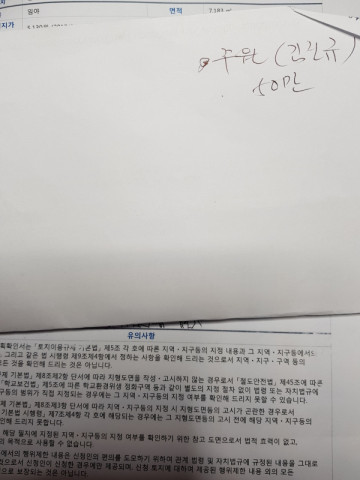 임야 면적
주원 (김진규)
50만
유의사항
획확인서는 「토지이용규제 기본법」 제5조 각 호에 따른 지역ㆍ지구등의 지정 내용과 그 지역ㆍ지구등에서의
그리고 같은 법 시행령 제9조제4항에서 정하는 사항을 확인해 드리는 것으로서 지역ㆍ지구ㆍ구역 등의
것을 확인해 드리는 것은 아닙니다.
기본법」 제8조제2항 단서에 따라 지형도면을 작성ㆍ고시하지 않는 경우로서 「철도안전법」 제45조에 따른
「학교보건법」 제5조에 따른 학교환경위생 정화구역 등과 같이 별도의 지정 절차 없이 법령 또는 자치법규에
구등의 범위가 직접 지정되는 경우에는 그 지역ㆍ지구등의 지정 여부를 확인해 드리지 못할 수 있습니다.
기본법」 제8조제3항 단서에 따라 지역ㆍ지구등의 지정 시 지형도면등의 고시가 곤란한 경우로서
기본법 시행령」 제7조제4항 각 호에 해당되는 경우에는 그 지형도면등의 고시 전에 해당 지역ㆍ지구등의
인해 드리지 못합니다.
해당 절차에 지정된 지역ㆍ지구등의 지정 여부를 확인하기 위한 참고 도면으로서 법적 효력이 없고,
목적으로 사용할 수 없습니다.
에서의 행위제한 내용은 신청인의 편의를 도모하기 위하여 관계 법령 및 자치법규에 규정된 내용을 그대로
것으로서 신청인이 신청한 경우에만 제공되며, 신청 토지에 대하여 제공된 행위제한 내용 외의 모든
으로 보장되는 것은 아닙니다.